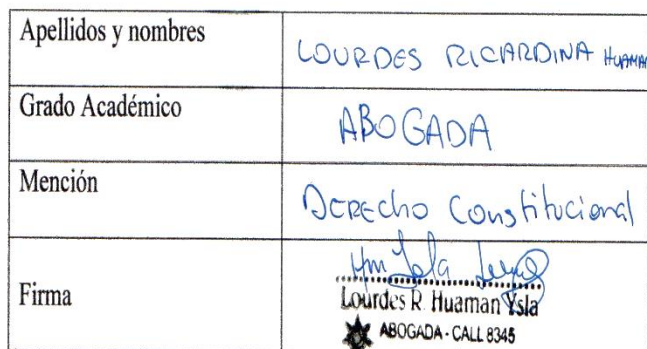 Apellidos y nombres
LOURDES RICARDINA HUAMAN
Grado Académico
ABOGADA
Mención
DERECho Constitucional
Firma
Lourdes R. Huaman Ysla
ABOGADA - CALL 8345